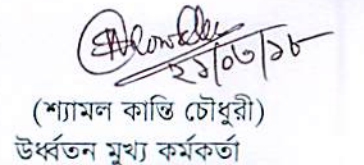 ২১/০৬/১৮
(শ্যামল কান্তি চৌধুরী)
উর্ধ্বতন মুখ্য কর্মকর্তা